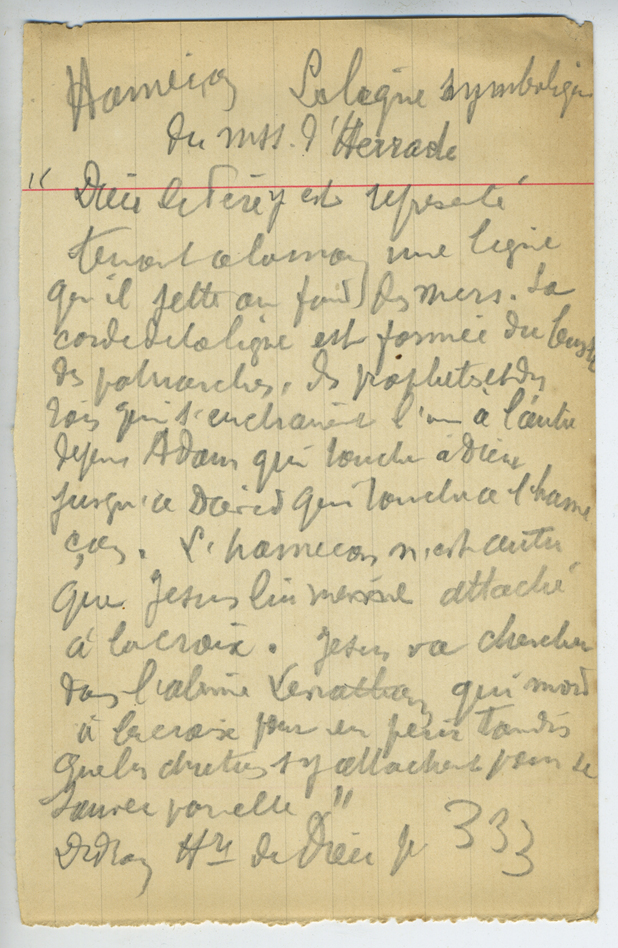 Hameçon La ligne symbolique
du mss. d'Herrade
" Dieu le Père y est représenté
tenant à la main une ligne
qu'il jette au fond des mers. La
corde de la ligne est formée du buste
des patriarches, des prophètes et des
rois qui s'enchainent l'un à l'autre
depuis Adam qui touche à Dieu
jusqu'à David qui touche à l'hame
çon. L'hameçon n'est autre
que Jesus lui même attaché
à la croix. Jesus va chercher
dans l'abime Leviathan qui mord
à la croix pour en perir tandis
que les chretiens s'y attachent pour se
sauver par elle "
Didron Hre de Dieu p 333